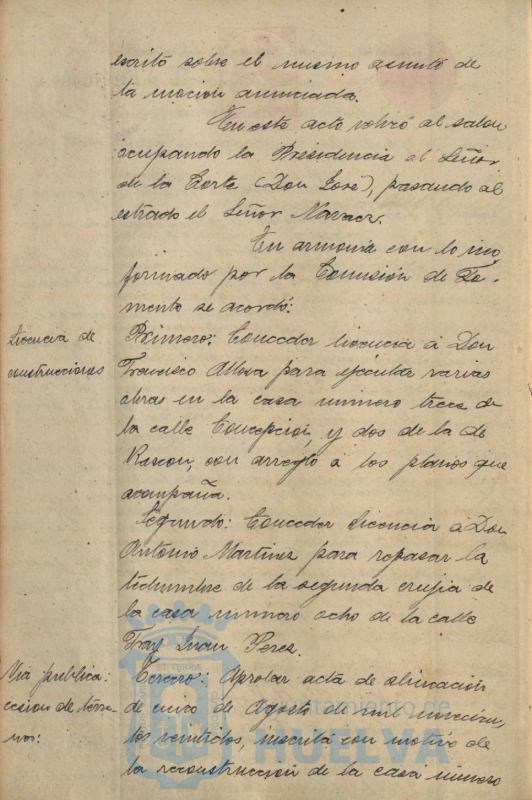 escrito sobre el mismo asunto de
la mocion anunciada.
En este acto volvió al salon
ocupando la Presidencia el Señor
de la Corte (Don José), pasando al
estrado el Señor
En armonia con lo in-
formado por la Comisión de Fo-
mento se acordó:
Licencia de
construcciones
Primero: Conceder licencia á Don
Francisco para ejecutar varias
obras en la casa numero trece de
la calle Concepcion, y dos de la de
Rascon, con arreglo á los planos que
acompaña.
Segundo: Conceder licencia á Don
Antonio Martinez para repasar la
techumbre de la segunda crujia de
la casa numero ocho de la calle
Fray Juan Perez.
Via publica:
cesion de terre-
nos:
Tercero: Aprobar acta de alineación
de cinco de Agosto de mil novecien
tos veintidos, inscrita con motivo de
la reconstruccion de la casa número
Ayuntamiento de
HUELVA